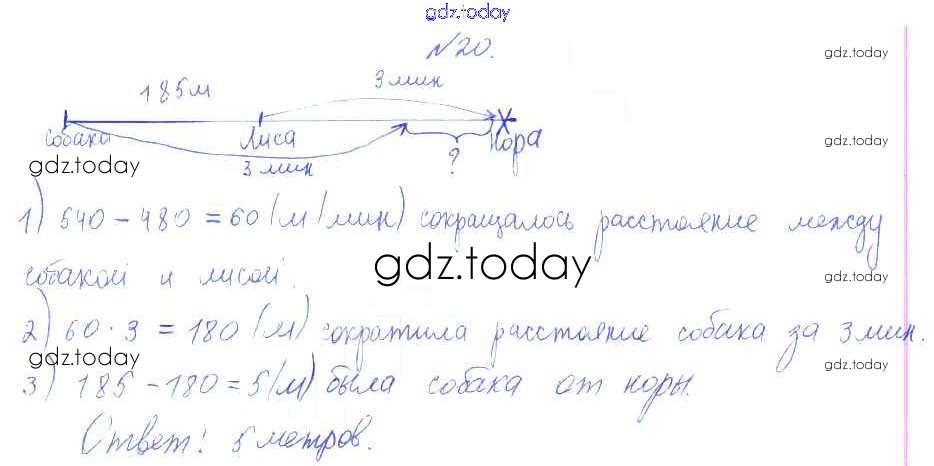 gdz.today
№20.
gdz.today
3 мин
185 м
gdz.today
собака
Лиса
Нора
gdz.today
3 мин
?
1) 540 - 480 = 60 (м/мин) сокращалось расстояние между
собакой и лисой.
gdz.today
gdz.today
2) 60 · 3 = 180 (м) сократила расстояние собака за 3 мин.
gdz.today
gdz.today
3) 185 - 180 = 5 (м) была собака от норы.
Ответ: 5 метров.